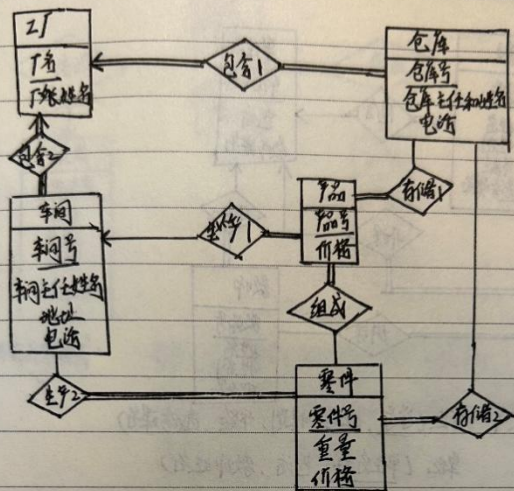 工厂
厂名
厂长姓名
包含1
仓库
仓库号
仓库主任和姓名
电话
包含2
车间
车间号
车间主任姓名
地址
电话
生产1
产品
产品号
价格
存储1
组成
生产2
零件
零件号
重量
价格
存储2